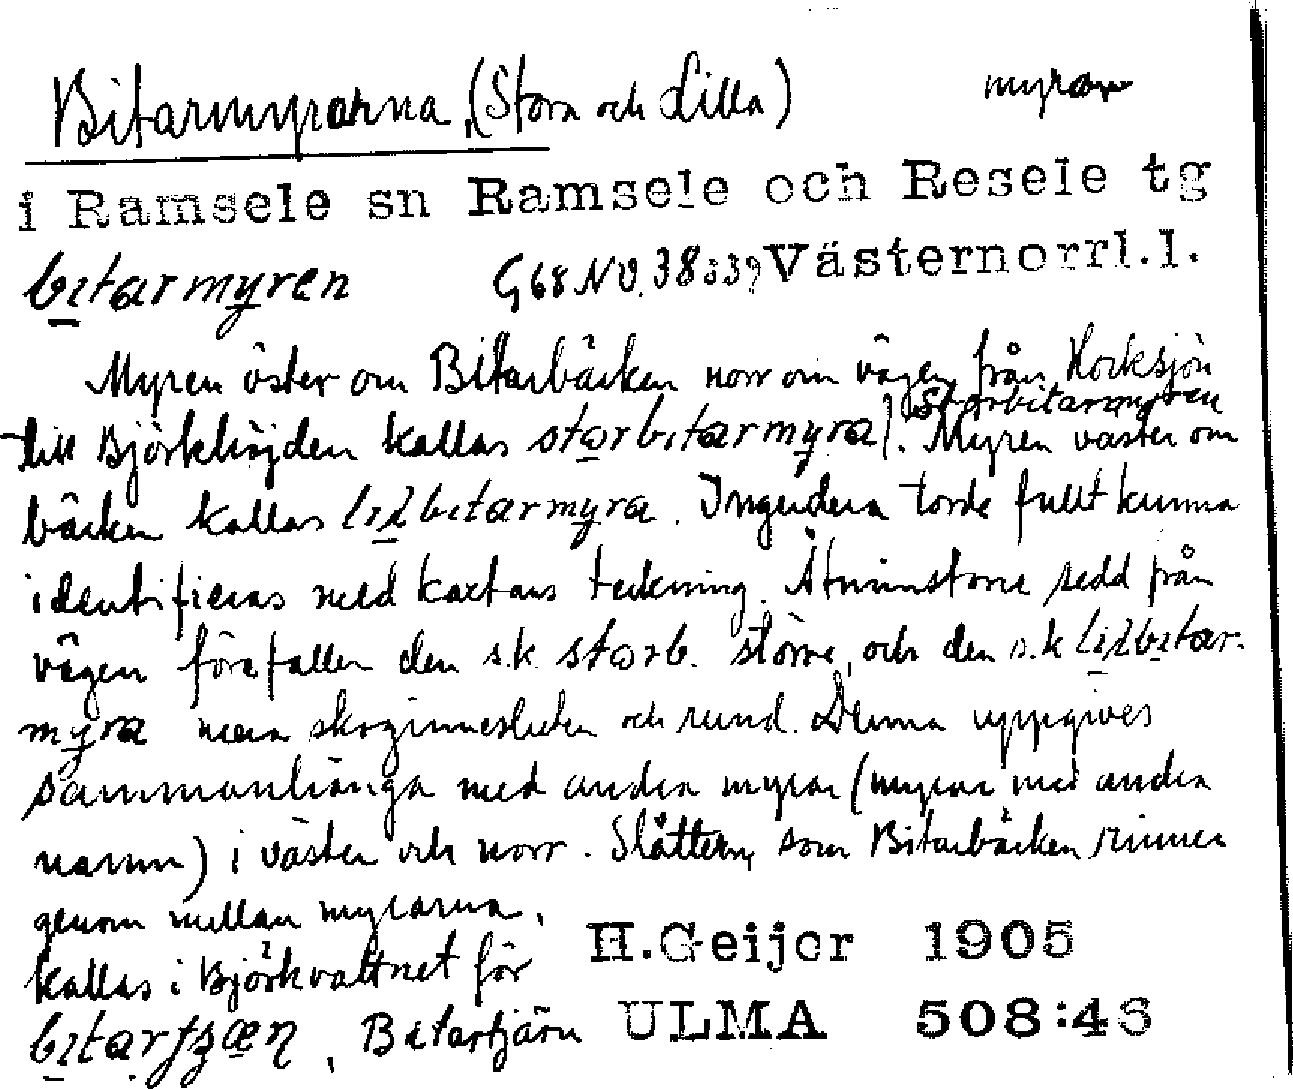 Bitarmyrarna, (Stora och Lilla) myrar
i Ramsele sn Ramsele och Resele tg
bitarmyren G68 NV. 38 Västernorrl.l.
Myren öster om Bitarbäcken norr om vägen från Hocksjön
Storbitarmyren
till Björkhöjden kallas storbitarmyra). Myren väster om
bäcken kallas lilbitarmyra. Ingendera torde fullt kunna
identifieras med kartans teckning. Åtminstone sedd från
vägen förefaller den s.k. storb. större, och den s.k lilbitar-
myra mera skoginnesluten och rund. Denna uppgives
sammanhänga med andra myrar (myrar med andra
namn) i väster och norr. Slåttern, som Bitarbäcken rinner
genom mellan myrarna,
kallas i Björkvattnet för
bitar Bitartjärn
H.Geijer 1905
ULMA 508:46